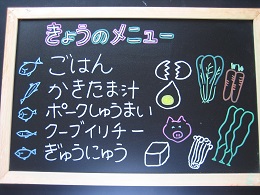 きょうのメニュー
ごはん
かきたま汁
ポークしゅうまい
クーブイリチー
ぎゅうにゅう